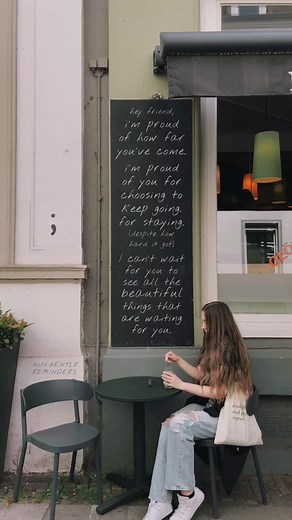 hey friend,
i'm proud
of how far
you've come.
i'm proud
of you for
choosing to
keep going.
for staying.
(despite how
hard it got)
I can't wait
for you to
see all the
beautiful
things that
are waiting
for you.
;
more GENTLE
REMINDERS